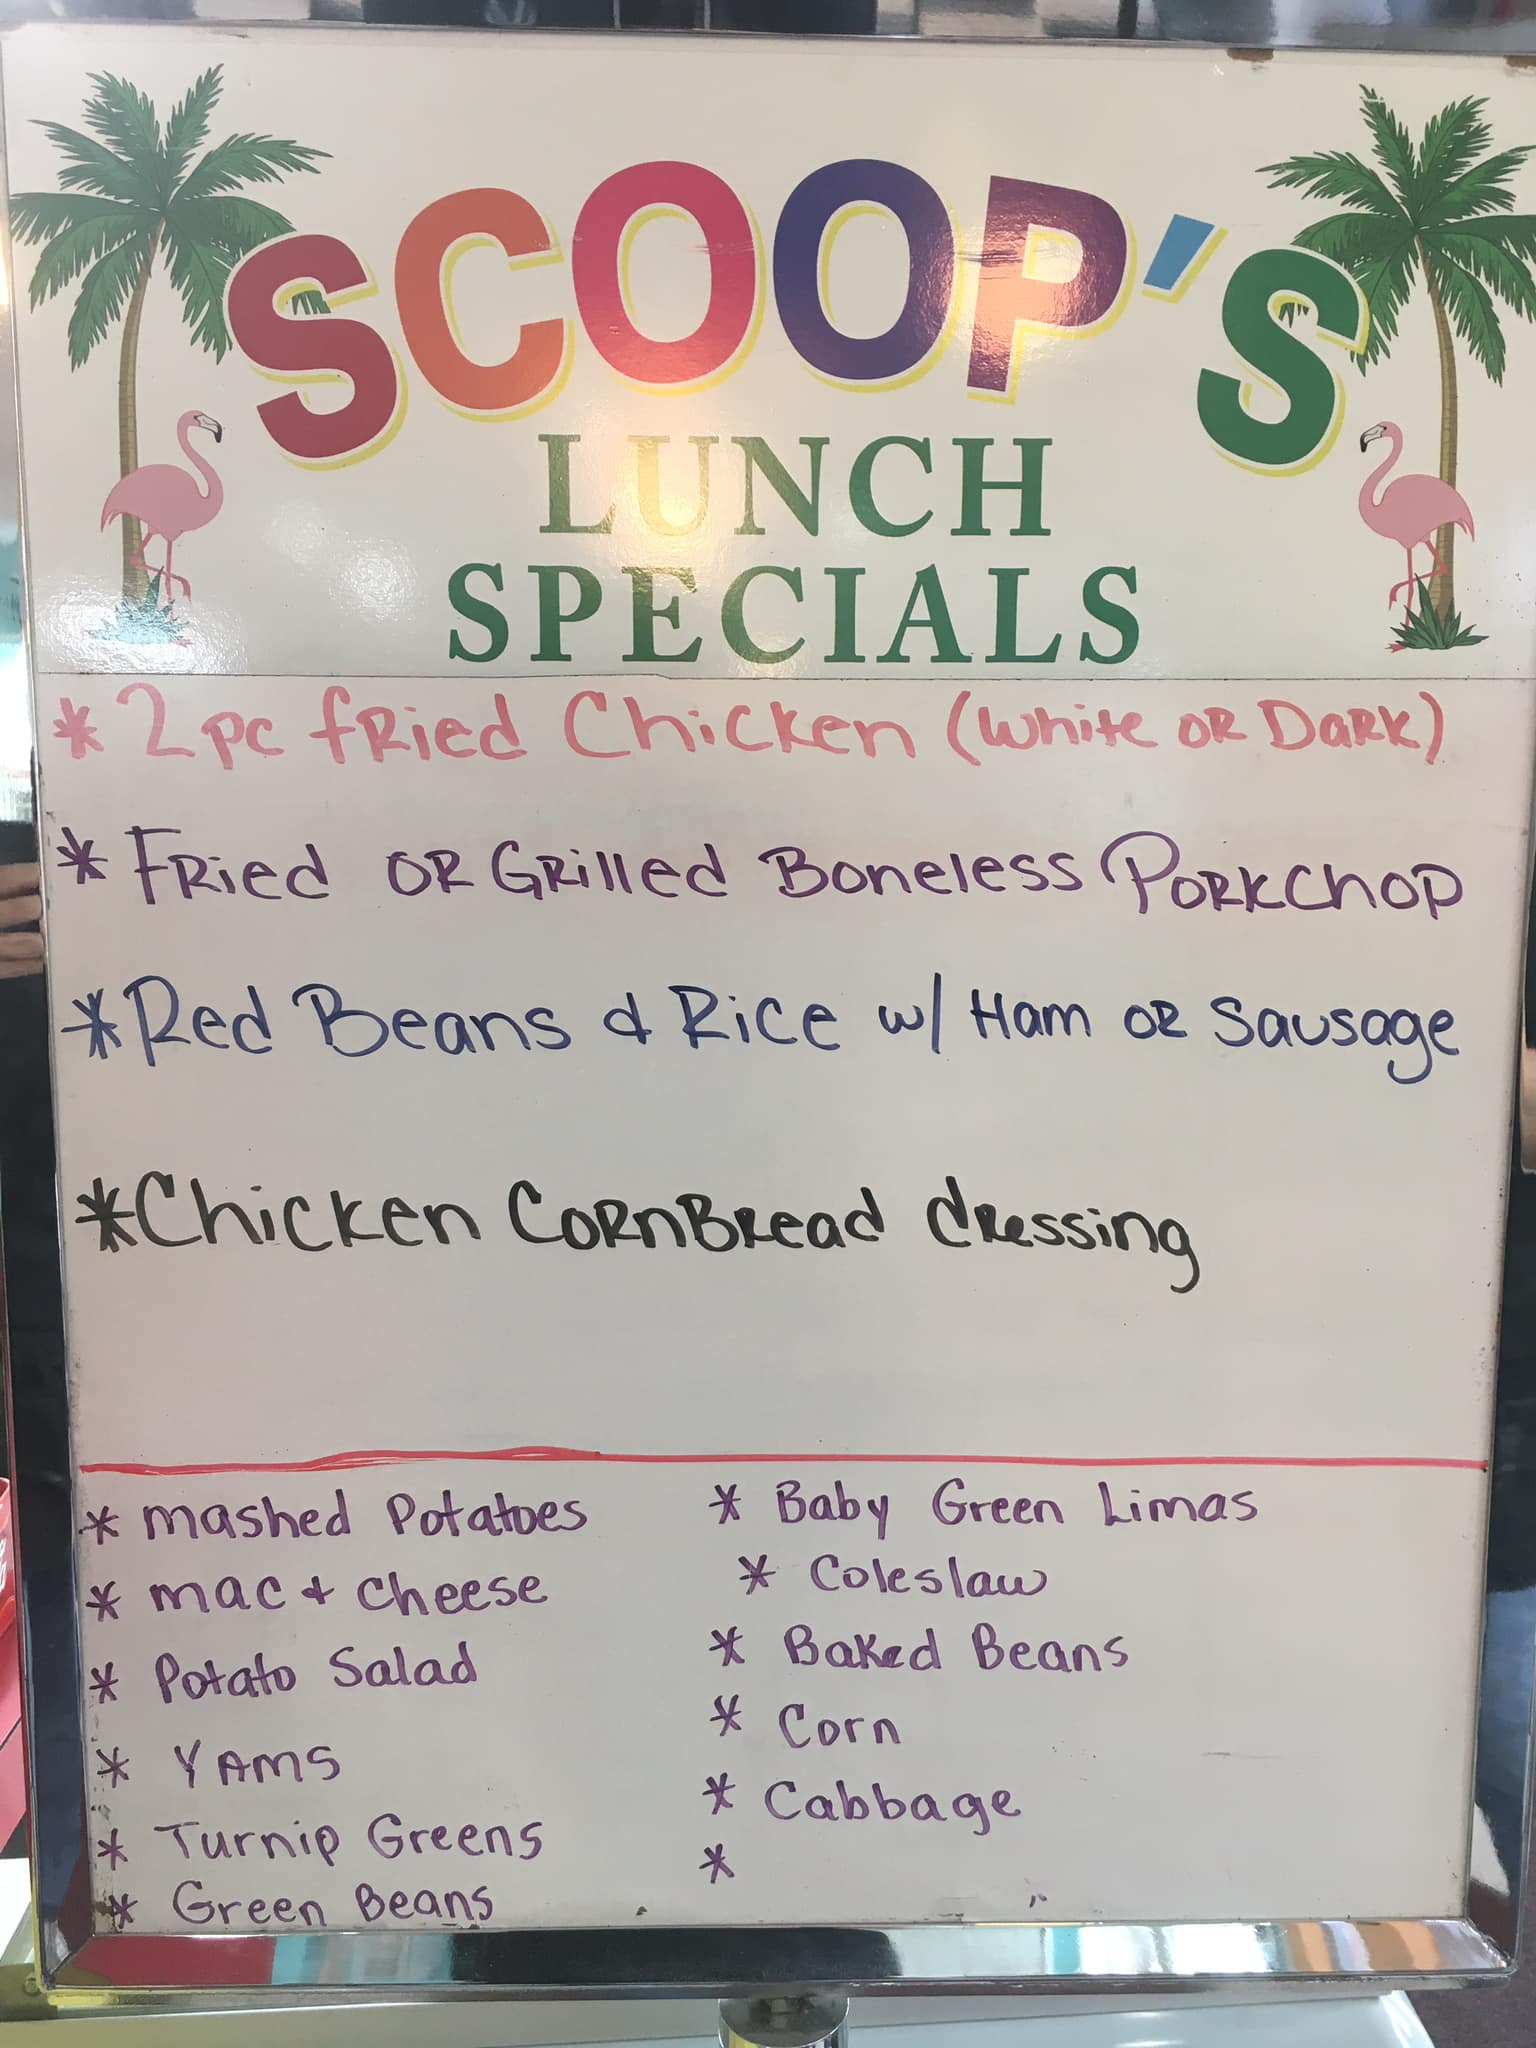 SCOOP'S
LUNCH
SPECIALS
* 2 pc fRied Chicken (White OR DaRK)
* FRied OR GRilled Boneless PORKChOP
* Red Beans & Rice w/ Ham OR Sausage
* Chicken CORnBRead dRessing
* mashed Potatoes
* mac + cheese
* Potato Salad
* YAMS
* Turnip Greens
* Green Beans
* Baby Green Limas
* Coleslaw
* Baked Beans
* Corn
* Cabbage
*